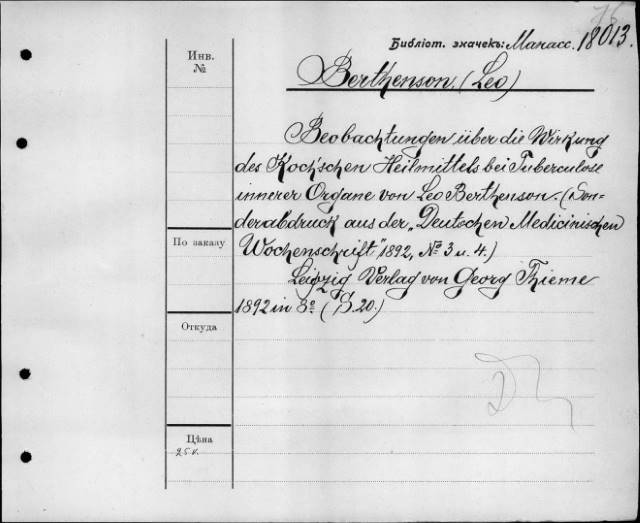 76
Библіот. значекъ: Манасс. 18013.
Инв.
№
Berthenson. (Leo)
Beobachtungen über die Wirkung
des Koch'schen Heilmittels bei Tuberculose
innerer Organe von Leo Berthenson. (Son-
derabdruck aus der „Deutschen Medicinischen
Wochenschrift" 1892, № 3 u. 4.)
Leipzig Verlag von Georg Thieme
1892 in 8º (S. 20.)
По заказу
Откуда
Цѣна
25 к.